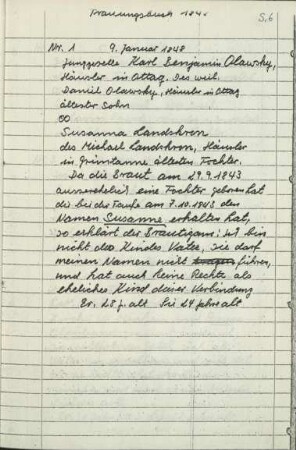 Trauungsbuch 184.
S. 6
Nr. 1 9. Januar 1848
Junggeselle Karl Benjamin Olawsky,
Häusler in Ottag. Des weil.
Daniel Olawsky, Häusler in Ottag
ältester Sohn
∞
Susanna Landskron
des Michael Landskron, Häusler
in Grüntanne ältesten Tochter.
Da die Braut am 29.9.1843
ausserehelich eine Tochter geboren hat
die bei der Taufe am 7.10.1843 den
Namen Susanne erhalten hat,
so erklärt der Bräutigam: ich bin
nicht des Kindes Vater, sie darf
meinen Namen nicht tragen führen,
und hat auch keine Rechte als
eheliches Kind dieser Verbindung
Er. 28 J. alt Sie 24 Jahre alt